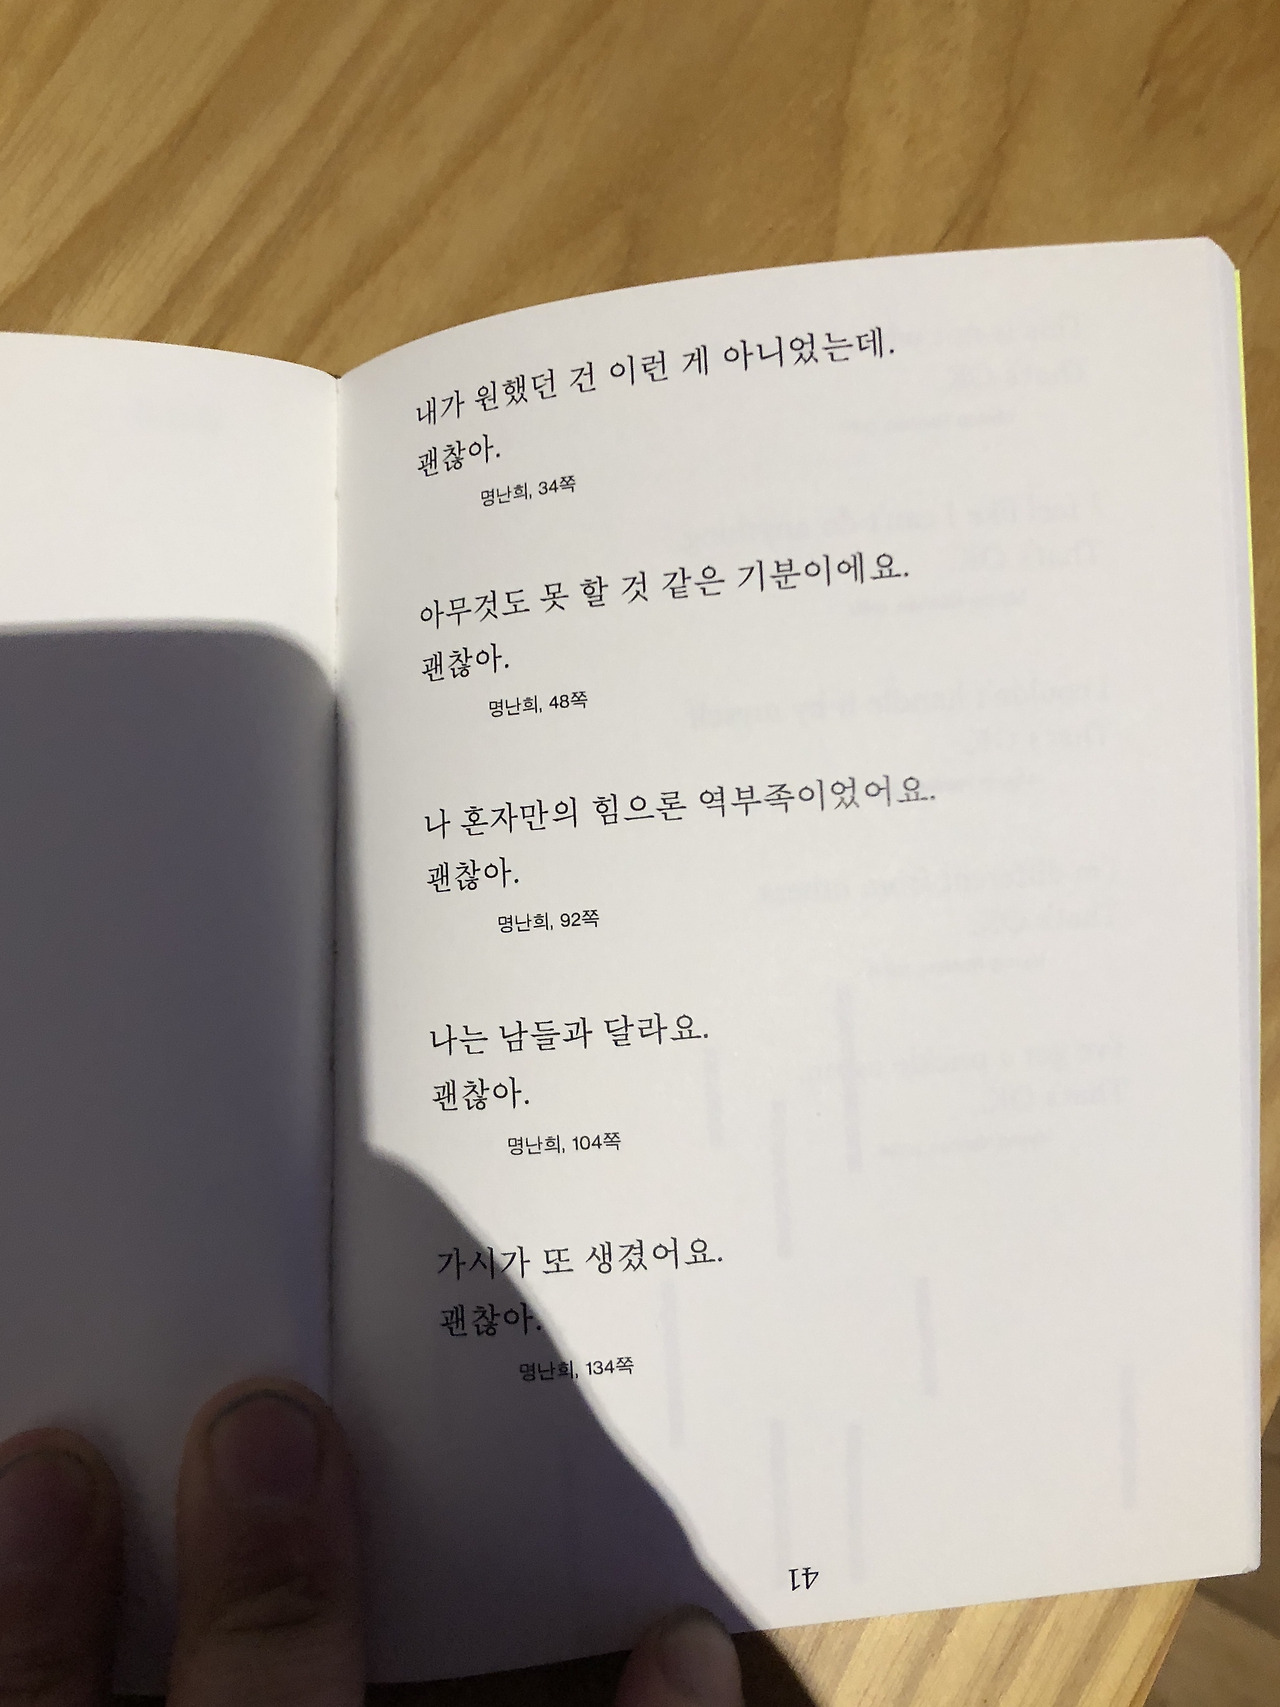 내가 원했던 건 이런 게 아니었는데.
괜찮아.
명난희, 34쪽
아무것도 못 할 것 같은 기분이에요.
괜찮아.
명난희, 48쪽
나 혼자만의 힘으론 역부족이었어요.
괜찮아.
명난희, 92쪽
나는 남들과 달라요.
괜찮아.
명난희, 104쪽
가시가 또 생겼어요.
괜찮아.
명난희, 134쪽
41